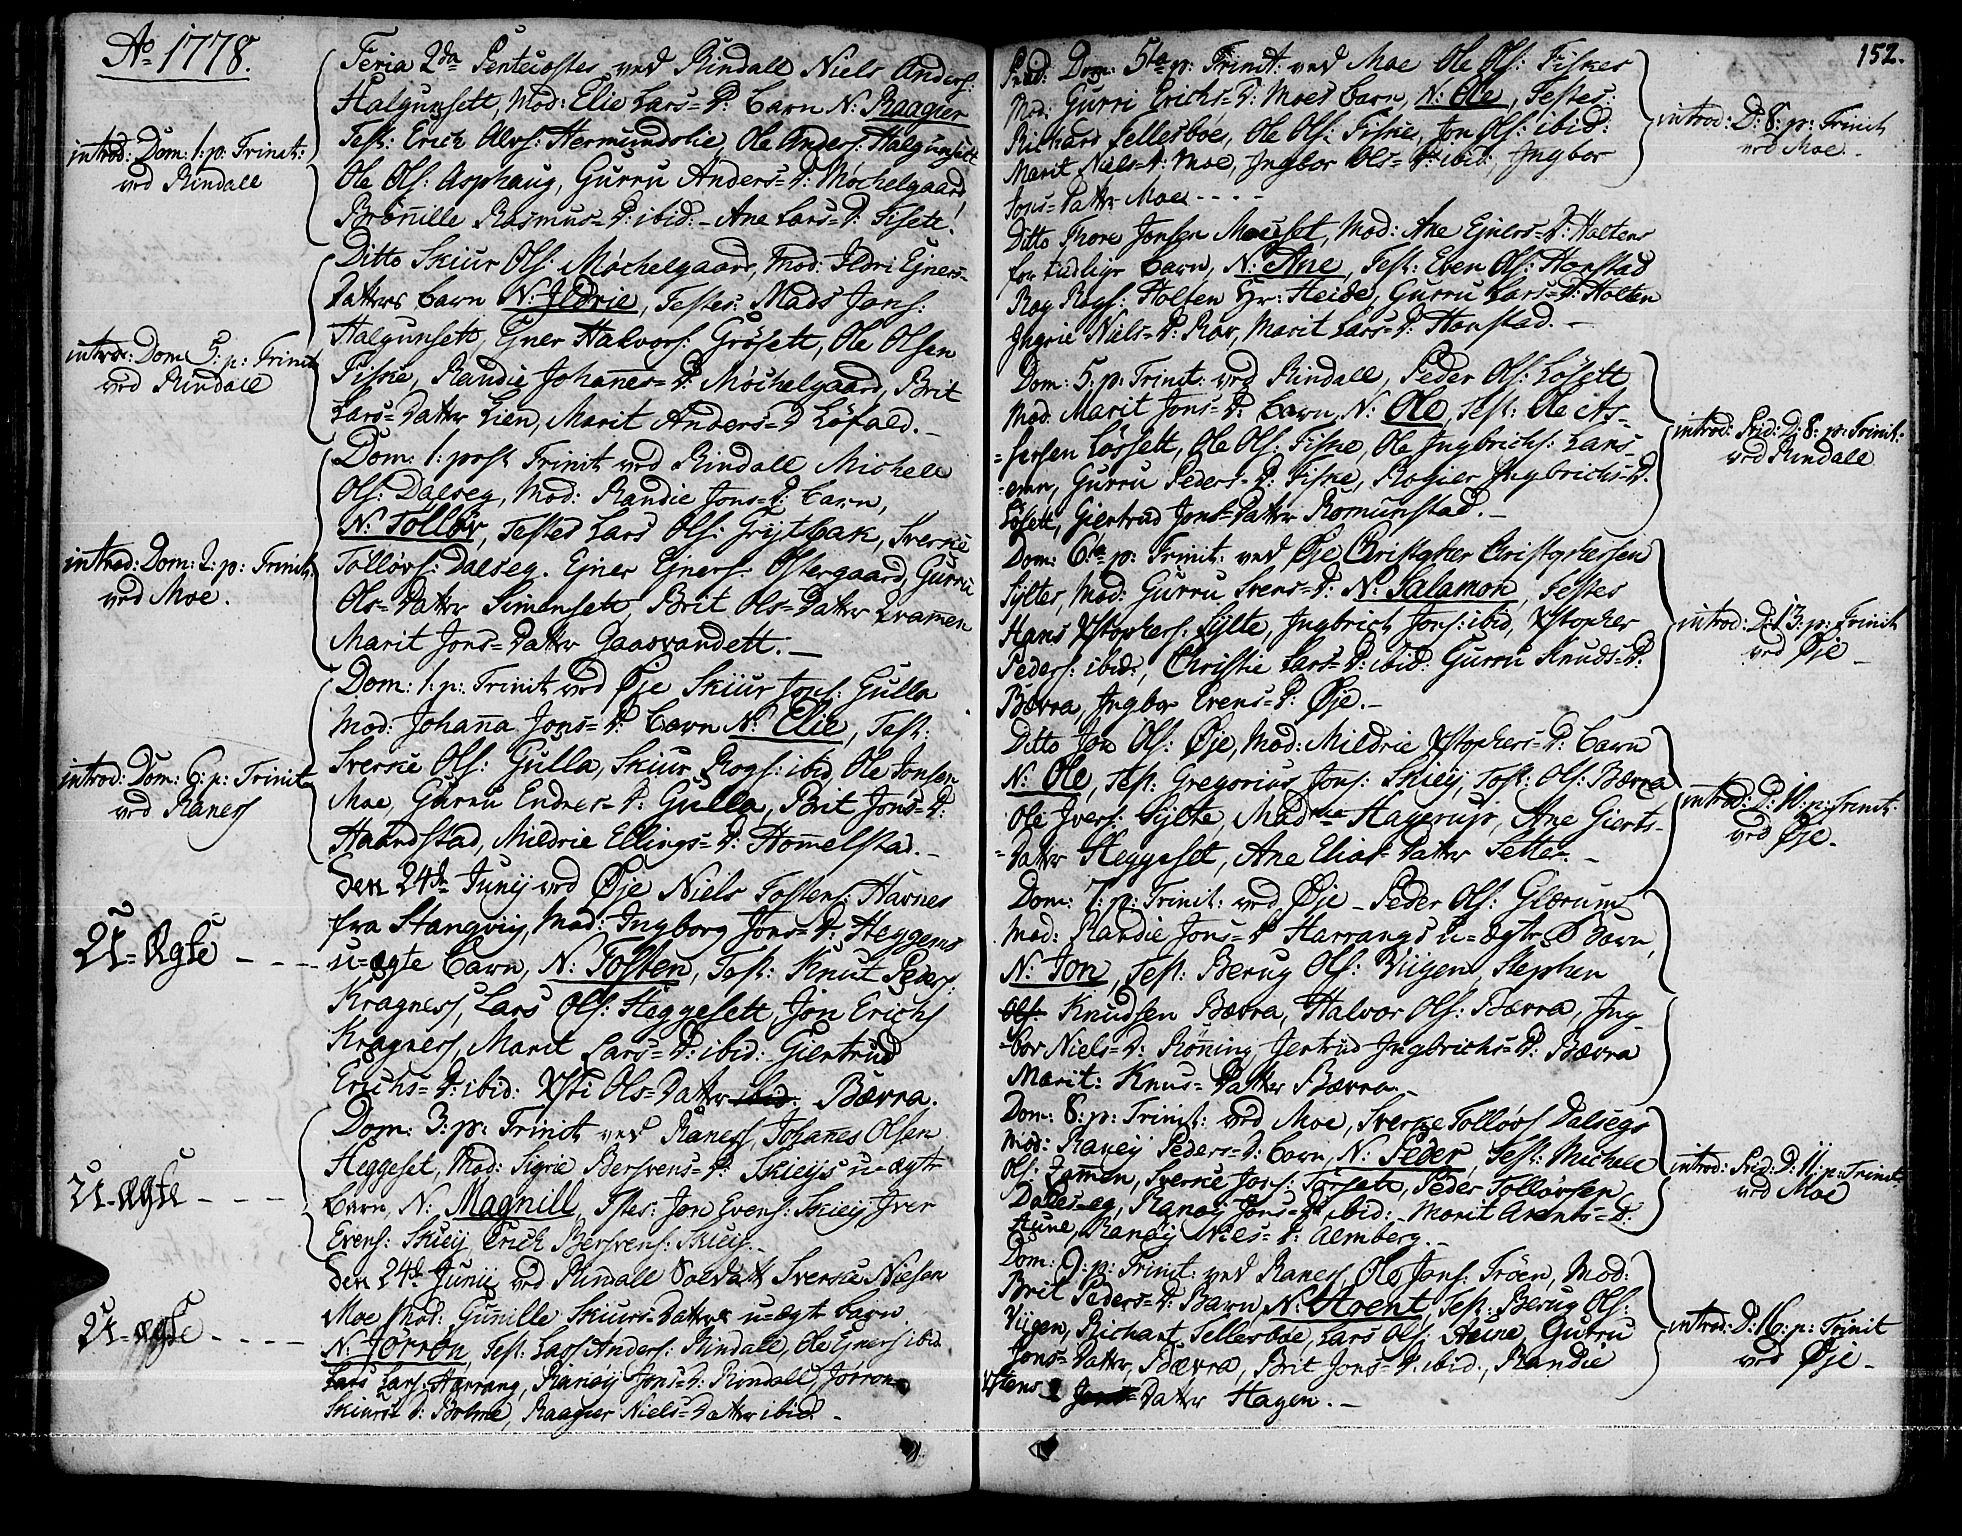 Ao 1778.
Feria 2da Pentecostes ved Rindall Niels Anders:
Halgunsett, Mod: Elie Lars=D: barn N: Raagier
Test: Erich Olvs: Hermundslie, Ole Anders: Halgunsett
Ole Ols: Asphaug, Gurru Anders=D: Mochelgaard
Brönille Rasmus=D: ibid: - Ane Lars=D: Sisett!
introd: Dom: 1: p: Trinit:
ved Rindall
Ditto Skiur Ols: Møchelgaard, Mod: Ildri Ejners=
Datters barn N: Ildrie, Testes: Mads Jons:
Halgunsett, Ejner Halvors: Grösett, Ole Olsen
Fiske, Randie Johanes=D: Møchelgaard, Brit
Lars=Datter Lien, Marit Anders=D Löfald. -
introd: Dom 5: p: Trinit
ved Rindall
Dom: 1: post Trinit ved Rindall Michell
Ols: Dalseg, Mod: Randie Jons=D: barn,
N: Tolløv, Testes Lars Ols: Grytbak, Sverke
Tölløvs: Dalseg. Ejner Ejners: Ostergaard, Gurru
Ols=Datter Simensett Brit Ols=Datter Qvamen
Marit Jons=Datter Gaasvandett. -
introd: Dom: 2: p: Trinit:
ved Moe.
Dom: 1: p: Trinit ved Øje Skiur Jons: Gulla
Mod: Johana Jons=D: barn N: Elie, Test:
Sverke Ols: Gulla, Skiur Rogs: ibid, Ole Jonsen
Moe, Gurru Endres=D: Gulla, Brit Jons=D:
Haandstad, Mildrie Ellings=D: Homelstad. -
introd: Dom: 6: p: Trinit
ved Raness
Den 24de Junij ved Øje Niels Tostens: Havnes
fra Stangvig, Mod: Ingborg Jons=D: Heggems
u=ægte barn, N: Tosten, Test: Knut Peders:
Kragness, Lars Ols: Heggesett, Jon Erichs
Kragness, Marit Lars=D: ibid: Giertrud
Erichs=D: ibid: Xsti Ols=Datter ibid: Bævra.
U=Ægte - - -
Dom: 3: p: Trinit ved Raness, Johanes Olsen
Heggeset, Mod: Sigrie Bersvens=D: Skieijs u=ægte
barn, N: Magnill, Tstes: Jon Evens: Skieij Iver
Evens: Skieij Erich Bersvens: Skieij.
U=ægte - - -
Den 24de Junij ved Rindall Soldatt Sverke Nielsen
Moe Mod: Gunille Skiurs=Datters u=ægte barn
N: Jorron, Test: Lars Anders: Rindall, Ole Ejners ibid
Lars Lars: Harrang, Ranøy Jons=D: Rindall, Jorron
Skiurs D: Bolme, Raagier Niels=Datter ibid. -
U=ægte - - - -
152.
Dom: 5ta p: Trinit: ved Moe Ole Ols: Fiskes
Mod: Gurri Erichs=D: Moes barn, N: Ole, Testes:
Richard Fellesböe, Ole Ols: Fiske, Jon Ols: ibid:
Marit Niels=D: Moe, Ingbor Ols=D: ibid:, Ingbor
Jons=Datter Moe - - - -
introd: D: 8: p: Trinit
ved Moe. -
Ditto Thore Jonsen Moeset, Mod: Ane Ejners=D: Holtens
for tidlige barn, N: Ane, Test: Even Ols: Honstad
Rog Rogs: Holten Hr: Heide, Gurru Lars=D: Holten
Ingrie Niels=D: Roe, Marit Lars=D: Honstad. -
Dom: 5: p: Trinit: ved Rindall, Peder Ols: Løsett
Mod. Marit Jons=D: barn, N: Ole, Test: Ole As-
=fersen Løssett, Ole Ols: Fiske, Ole Ingbrichs: Lars-
=emn, Gurru Peders=D: Fiske, Rogier Ingbrichs=D:
Løsett, Giertrud Jons=Datter Romunstad. -
introd: Prid: D: 8: p: Trinit:
ved Rindall
Dom: 6ta p: Trinit: ved Øje Christopher Christophersen
Sylter, Mod: Gurru Svens=D: N: Salamon, Testes
Hans Xstophers: Sylte, Ingbrich Jons: ibid, Xstopher
Peders: ibid:, Christie Lars=D: ibid: Gurru Knuds=D:
Bævra, Ingbor Evens=D: Øje. -
introd: D: 13: p: Trinit
ved Øje -
Ditto Jon Ols: Øje, Mod: Mildrie Xstophers=D: barn
N: Ole, Test: Gregorius Jons: Skieij, Tost: Ols: Bævra
Ole Ivers: Sylte, Madme Hagerup, Ane Gierts-
=Datter Heggeset, Ane Elias=Datter Sette. -
introd: D: 10: p: Trinit:
ved Øje -
Dom: 7: p: Trinit: ved Øje - Peder Ols: Glærum
Mod: Randie Jons=D Harrangs u=ægte Barn
N: Jon, Test: Berug Ols: Viigen, Stephen
Ols: Knudsen Bævra, Halvor Ols: Bævra, Ing-
=bor Niels=D: Rönning, Jertrud Ingbrichs=D: Bævra
Marit: Knus=Datter Bævra. -
Dom: 8: p: Trinit: ved Moe, Sverke Tolløvs Dalsegs
Mod: Ranøij Peders=D: barn, N: Peder, Test: Michell
Ols: Qamen, Sverke Jons: Torsett, Peder Tolløvsen
Dalseg, Ranøj Jons=D ibid: Marit Arents=D:
Aune, Ranøij Niels=D: Almberg. -
introd: Prid: D: 11: p: Trinit:
ved Moe
Dom: 9: p: Trinit: ved Raness, Ole Jons: Tröen, Mod:
Brit Peders=D: Barn N: Arent, Test: Berug Ols:
Viigen, Richart Fellesboe, Lars Ols: Aune, Gurru
Jons=Datter, Bævra, Brit Jons=D: ibid:, Randie
Xstens= Jons=Datter Hagen. -
introd: D: 16: p: Trinit
ved Øje -